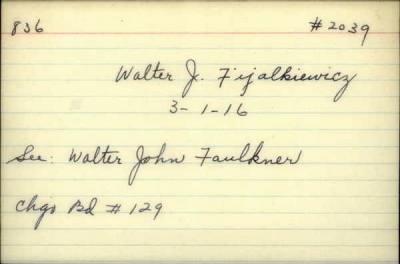 836 #2039
Walter J. Fijalkiewicz
3-1-16
See: Walter John Faulkner
Chgo Bd # 129